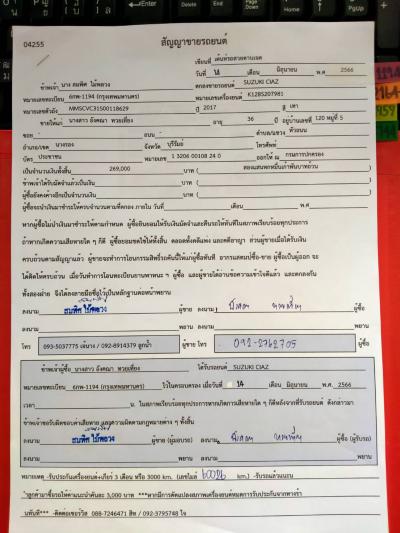 04255
สัญญาขายรถยนต์
เขียนที่ เต็นท์รถสวยตามเนต
วันที่ 14 เดือน มิถุนายน พ.ศ 2566
ข้าพเจ้า นาง สมพิศ ไม้พลวง ตกลงขายรถยนต์ SUZUKI CIAZ
หมายเลขทะเบียน 6กพ-1194 (กรุงเทพมหานคร) หมายเลขเครื่องยนต์ K12BS207981
หมายเลขตัวถัง MMSCVC31S00118629 ปี 2017 สี เทา
ขายให้แก่ นางสาว อังคณา หวยเที่ยง อายุ 36 ปี อยู่บ้านเลขที่ 120 หมู่ที่ 5
ซอย - ถนน - ตำบล/แขวง หัวถนน
อำเภอ/เขต นางรอง จังหวัด บุรีรัมย์ โทรศัพท์
บัตร ประชาชน หมายเลข 1 3206 00108 24 0 ออกให้ ณ กรมการปกครอง
เป็นจำนวนเงินทั้งสิ้น 269,000 บาท ( สองแสนหกหมื่นเก้าพันบาทถ้วน )
ข้าพเจ้าได้รับมัดจำแล้วเป็นเงิน บาท ( )
ผู้ซื้อยังคงค้างอีกเป็นจำนวนเงิน บาท ( )
ผู้ซื้อจะนำเงินมาชำระให้ครบจำนวนตามที่ตกลง ภายใน วันที่ เดือน พ.ศ
หากผู้ซื้อไม่นำเงินมาชำระให้ตามกำหนด ผู้ซื้อยินยอมให้ริบเงินมัดจำและคืนรถให้ทันทีในสภาพเรียบร้อยทุกประการ
ถ้าหากเกิดความเสียหายใด ๆ ก็ดี ผู้ซื้อยอมชดใช้ให้ทั้งสิ้น ตลอดทั้งคดีแพ่ง และคดีอาญา ส่วนผู้ขายเมื่อได้รับเงิน
ครบถ้วนตามสัญญาแล้ว ผู้ขายจะทำการโอนกรรมสิทธิ์รถคันนี้ให้แก่ผู้ซื้อทันที อากรแสตมป์ซื้อ-ขาย ผู้ซื้อเป็นผู้ออก จะ
ได้คิดให้ครบถ้วน เมื่อวันทำการโอนทะเบียนยานพาหนะ ฯ ผู้ซื้อ และผู้ขายได้อ่านข้อความเข้าใจดีแล้ว และตกลงกัน
ทั้งสองฝ่าย จึงได้ลงลายมือชื่อไว้เป็นหลักฐานต่อหน้าพยาน
ลงนาม สมพิศ ไม้พลวง ผู้ขาย ลงนาม ผู้ซื้อ
ลงนาม พยาน ลงนาม พยาน
โทร 093-5037775 เจ๊นาง / 092-8914379 ลูกน้ำ ผู้ขาย โทร 092-2762705 ผู้ซื้อ
ข้าพเจ้าผู้ซื้อ นางสาว อังคณา หวยเที่ยง ได้รับรถยนต์ SUZUKI CIAZ
หมายเลขทะเบียน 6กพ-1194 (กรุงเทพมหานคร) ไว้ในครอบครอง เมื่อวันที่ 14 เดือน มิถุนายน พ.ศ. 2566
เวลา น. ในสภาพเรียบร้อยทุกประการหากเกิดการเสียหายใด ๆ ก็ดีหลังจากที่รับรถยนต์ ดังกล่าวมา
ข้าพเจ้าขอรับผิดชอบค่าเสียหาย และความผิดตามกฎหมายต่าง ๆ ทั้งสิ้น
ลงนาม สมพิศ ไม้พลวง ผู้ขาย (ผู้มอบรถ) ลงนาม ผู้ซื้อ (ผู้รับรถ)
ลงนาม พยาน ลงนาม พยาน
หมายเหตุ -รับประกันเครื่องยนต์+เกียร์ 3 เดือน หรือ 3000 km. (เลขไมล์ 60026 km) -รับรถแล้วแถม
*ลูกค้ามาซื้อรถให้ค่าแนะนำคันละ 3,000 บาท ***หากมีการดัดแปลงสภาพเครื่องยนต์หมดการรับประกันจากทางเรา
ทันที*** -ติดต่อเซอร์วิส 088-7246471 สิท / 092-3795748 ใจ